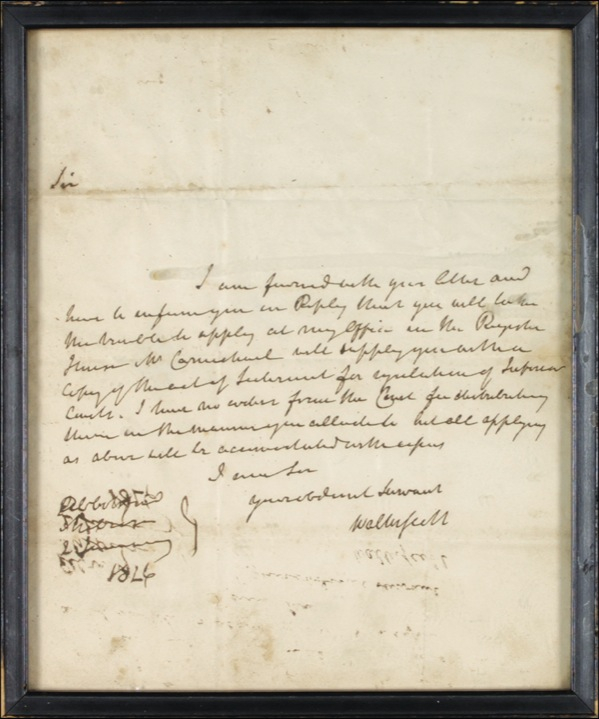 Sir
I am favored with your letter and
have to inform you in Reply that if you will take
the trouble to apply at my Office in the Register
House Mr Carmichael will supply you with a
Copy of the act of Sederunt for regulation of Inferior
Courts. I have no orders from the Court for distributing
them in the manner you allude to but all applying
as above will be accomodated with copies
I am Sir
your obedient Servant
Walter Scott
Abbotsford
1826